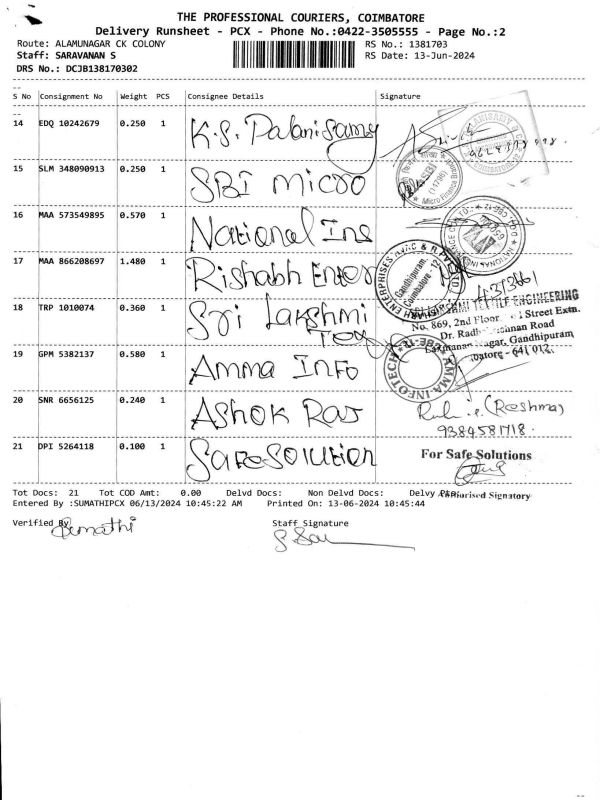 THE PROFESSIONAL COURIERS, COIMBATORE
Delivery Runsheet - PCX - Phone No.:0422-3505555 - Page No.:2
Route: ALAMUNAGAR CK COLONY RS No.: 1381703
Staff: SARAVANAN S RS Date: 13-Jun-2024
DRS No.: DCJB138170302
S No Consignment No Weight PCS Consignee Details Signature
14 EDQ 10242679 0.250 1 K.S. Palanisamy
15 SLM 348090913 0.250 1 SBI micro
16 MAA 573549895 0.570 1 National Ins
17 MAA 866208697 1.480 1 Rishabh Enter
18 TRP 1010074 0.360 1 Sri Lakshmi
Tex
TEXTILE ENGINEERING
No. 869, 2nd Floor Street Extn.
Nagar, Gandhipuram
641 012.
19 GPM 5382137 0.580 1 Amma Info
AMMA INFOTECH
20 SNR 6656125 0.240 1 Ashok Raj (Reshma)
9384581718.
21 DPI 5264118 0.100 1 Safe Solution For Safe Solutions
Authorised Signatory
Tot Docs: 21 Tot COD Amt: 0.00 Delvd Docs: Non Delvd Docs: Delvy
Entered By :SUMATHIPCX 06/13/2024 10:45:22 AM Printed On: 13-06-2024 10:45:44
Verified By Staff Signature
Sumathi